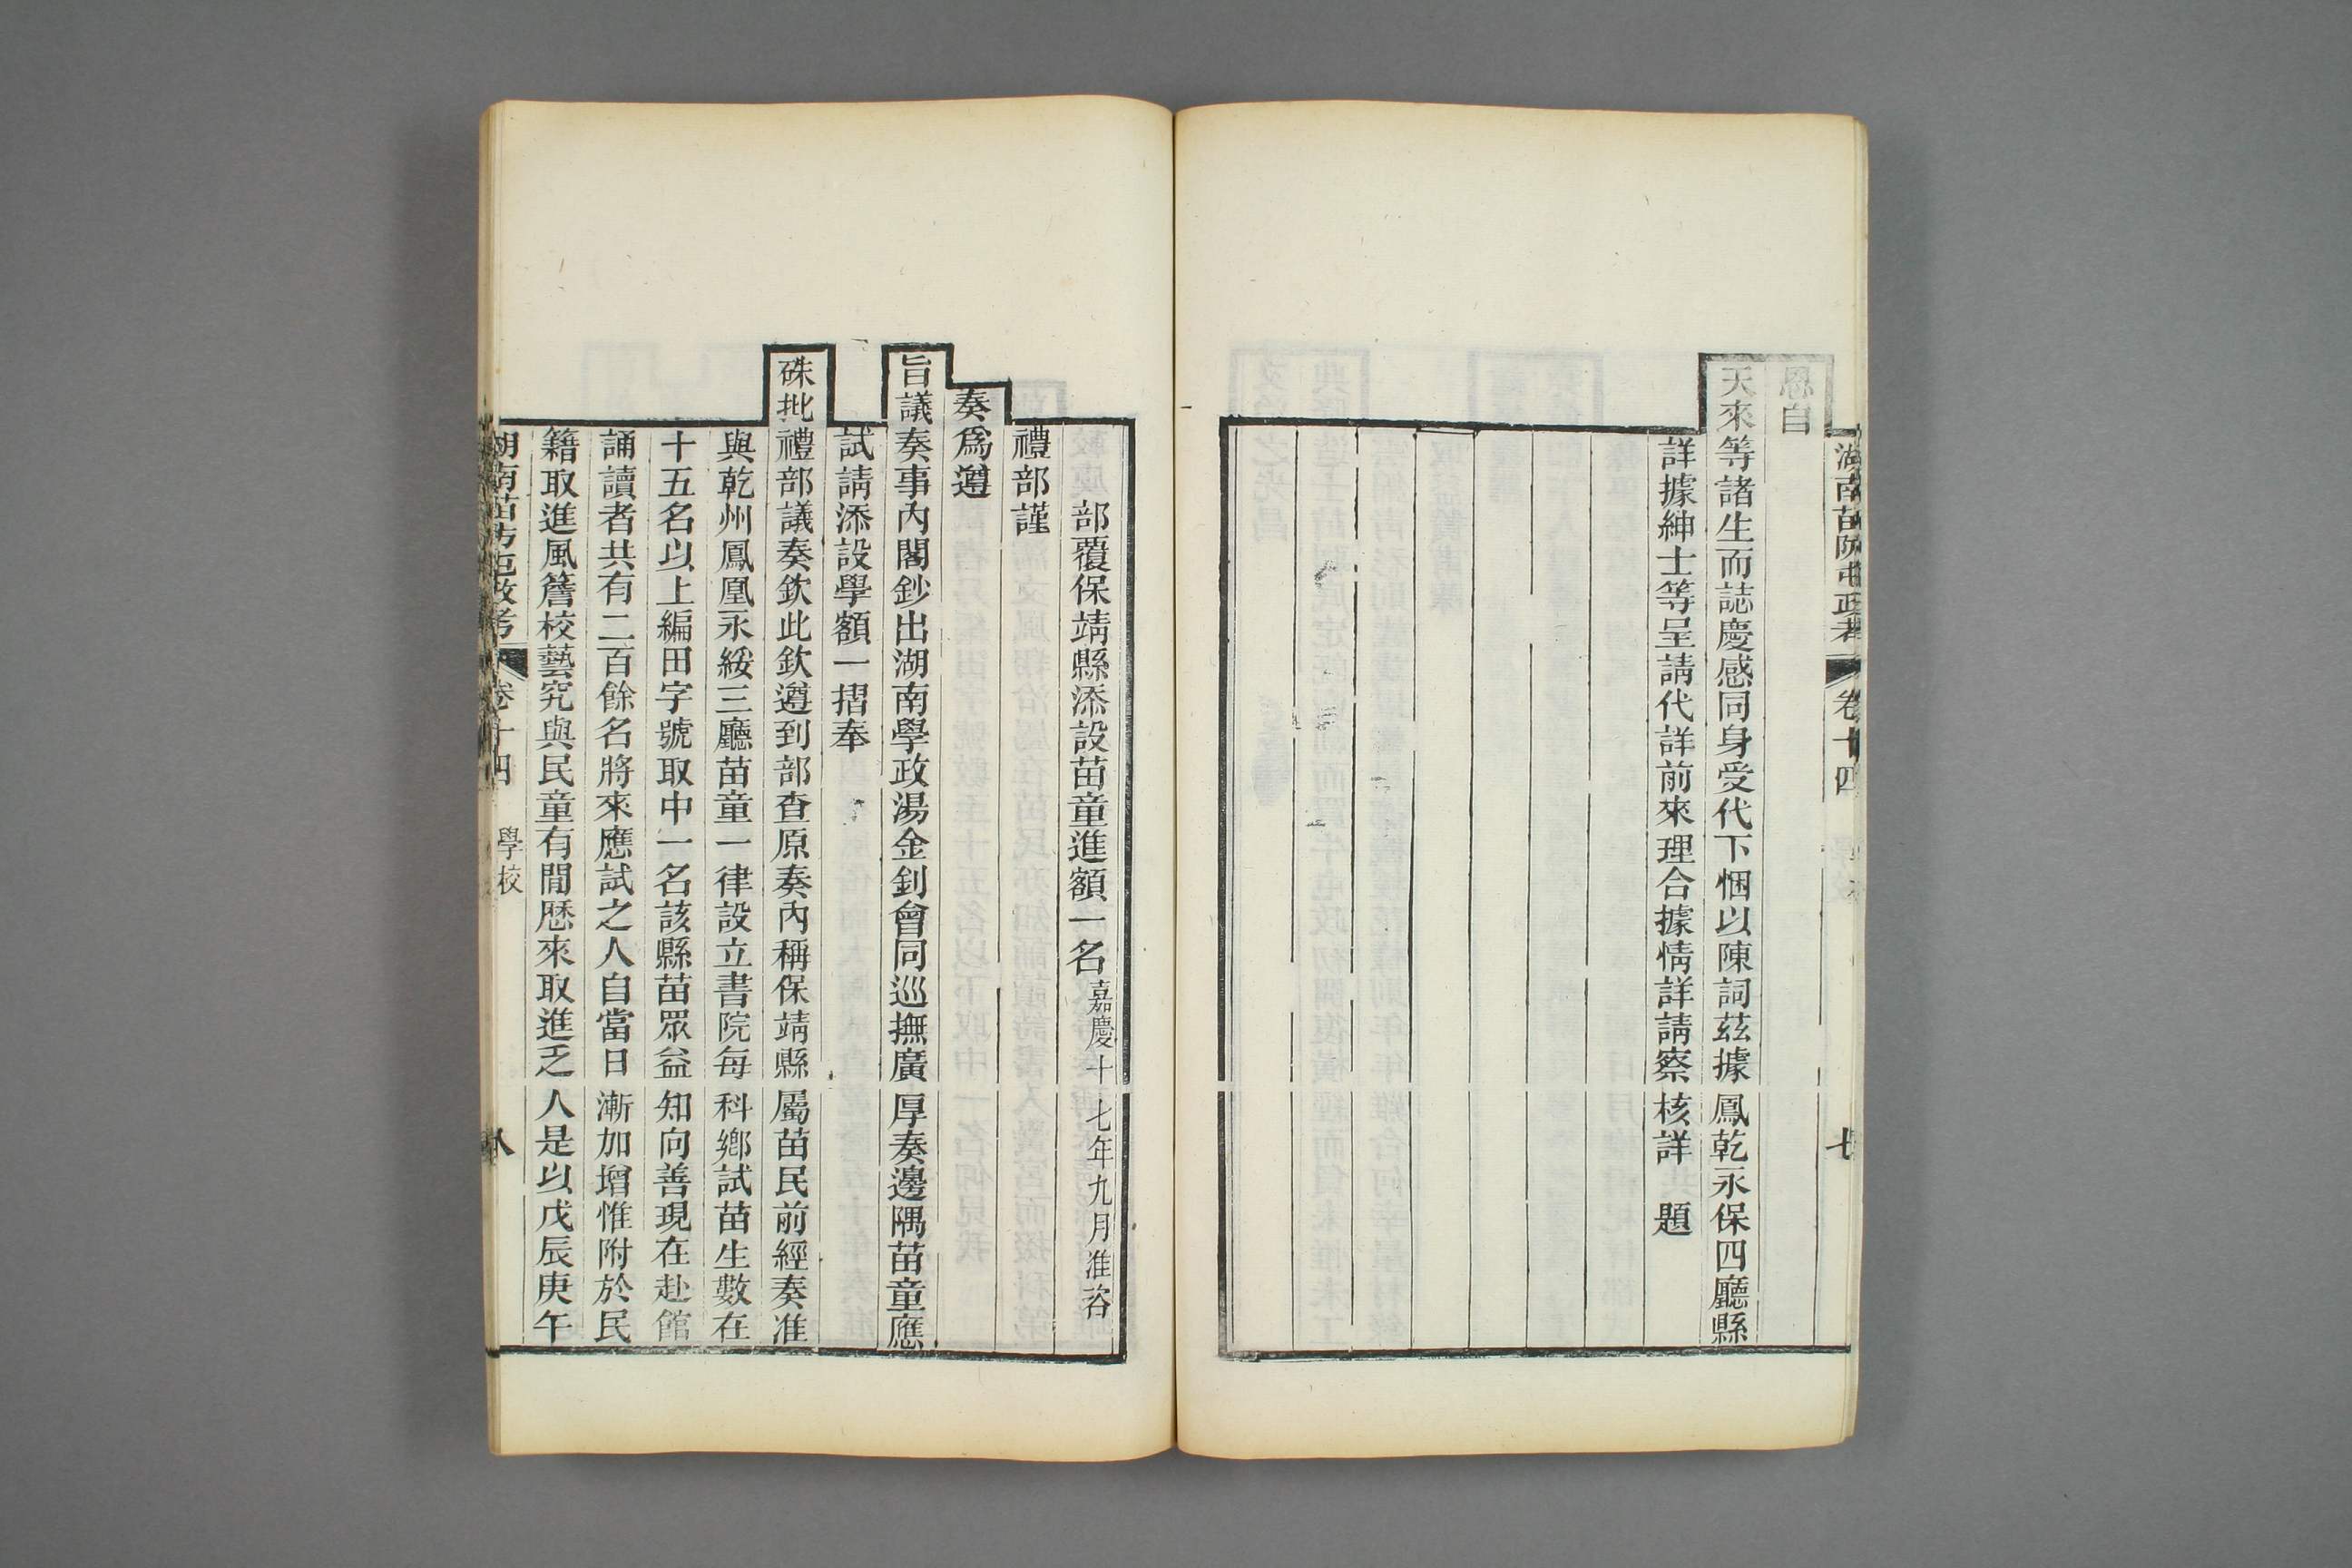 湖南苗防屯政考 卷十四 七
恩自
天來等諸生而誌慶感同身受代下悃以陳詞茲據鳳乾永保四廳縣
詳據紳士等呈請代詳前來理合據情詳請察核詳 題
部覆保靖縣添設苗童進額一名嘉慶十七年九月准咨
禮部謹
奏爲遵
旨議奏事內閣鈔出湖南學政湯金釗會同巡撫廣厚奏邊隅苗童應
試請添設學額一摺奉
硃批禮部議奏欽此欽遵到部查原奏內稱保靖縣屬苗民前經奏准
與乾州鳳凰永綏三廳苗童一律設立書院每科鄉試苗生數在
十五名以上編田字號取中一名該縣苗眾益知向善現在赴館
誦讀者共有二百餘名將來應試之人自當日漸加增惟附於民
籍取進風簷校藝究與民童有間歷來取進乏人是以戊辰庚午
湖南苗防屯政考 卷十四 學校 八